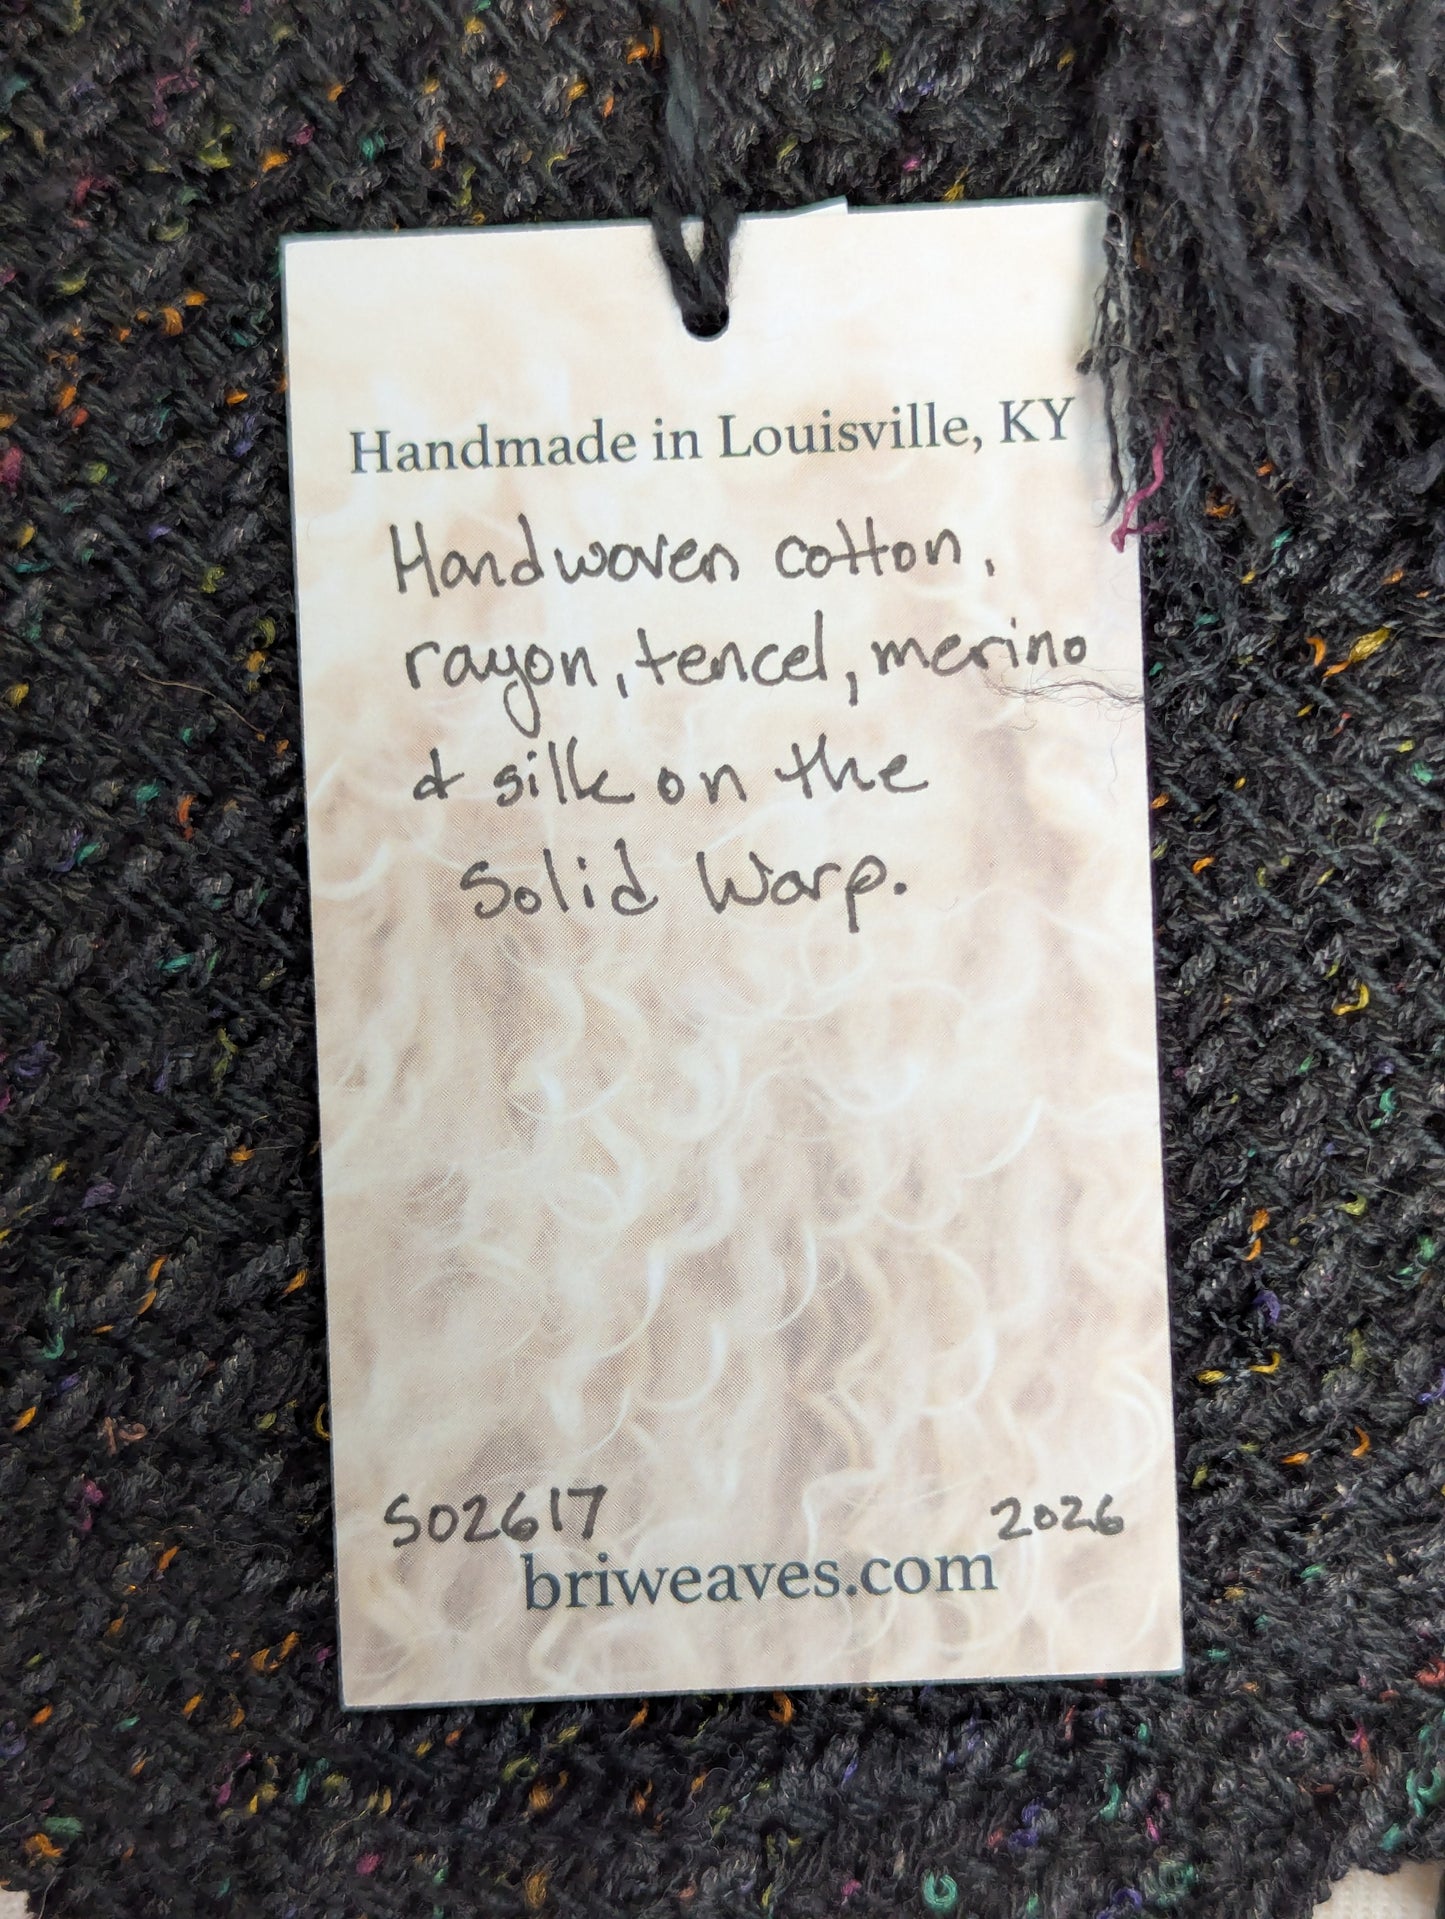 Handmade in Louisville, KY
Handwoven cotton,
rayon, tencel, merino
& silk on the
Solid Warp.
S02617 2026
briweaves.com